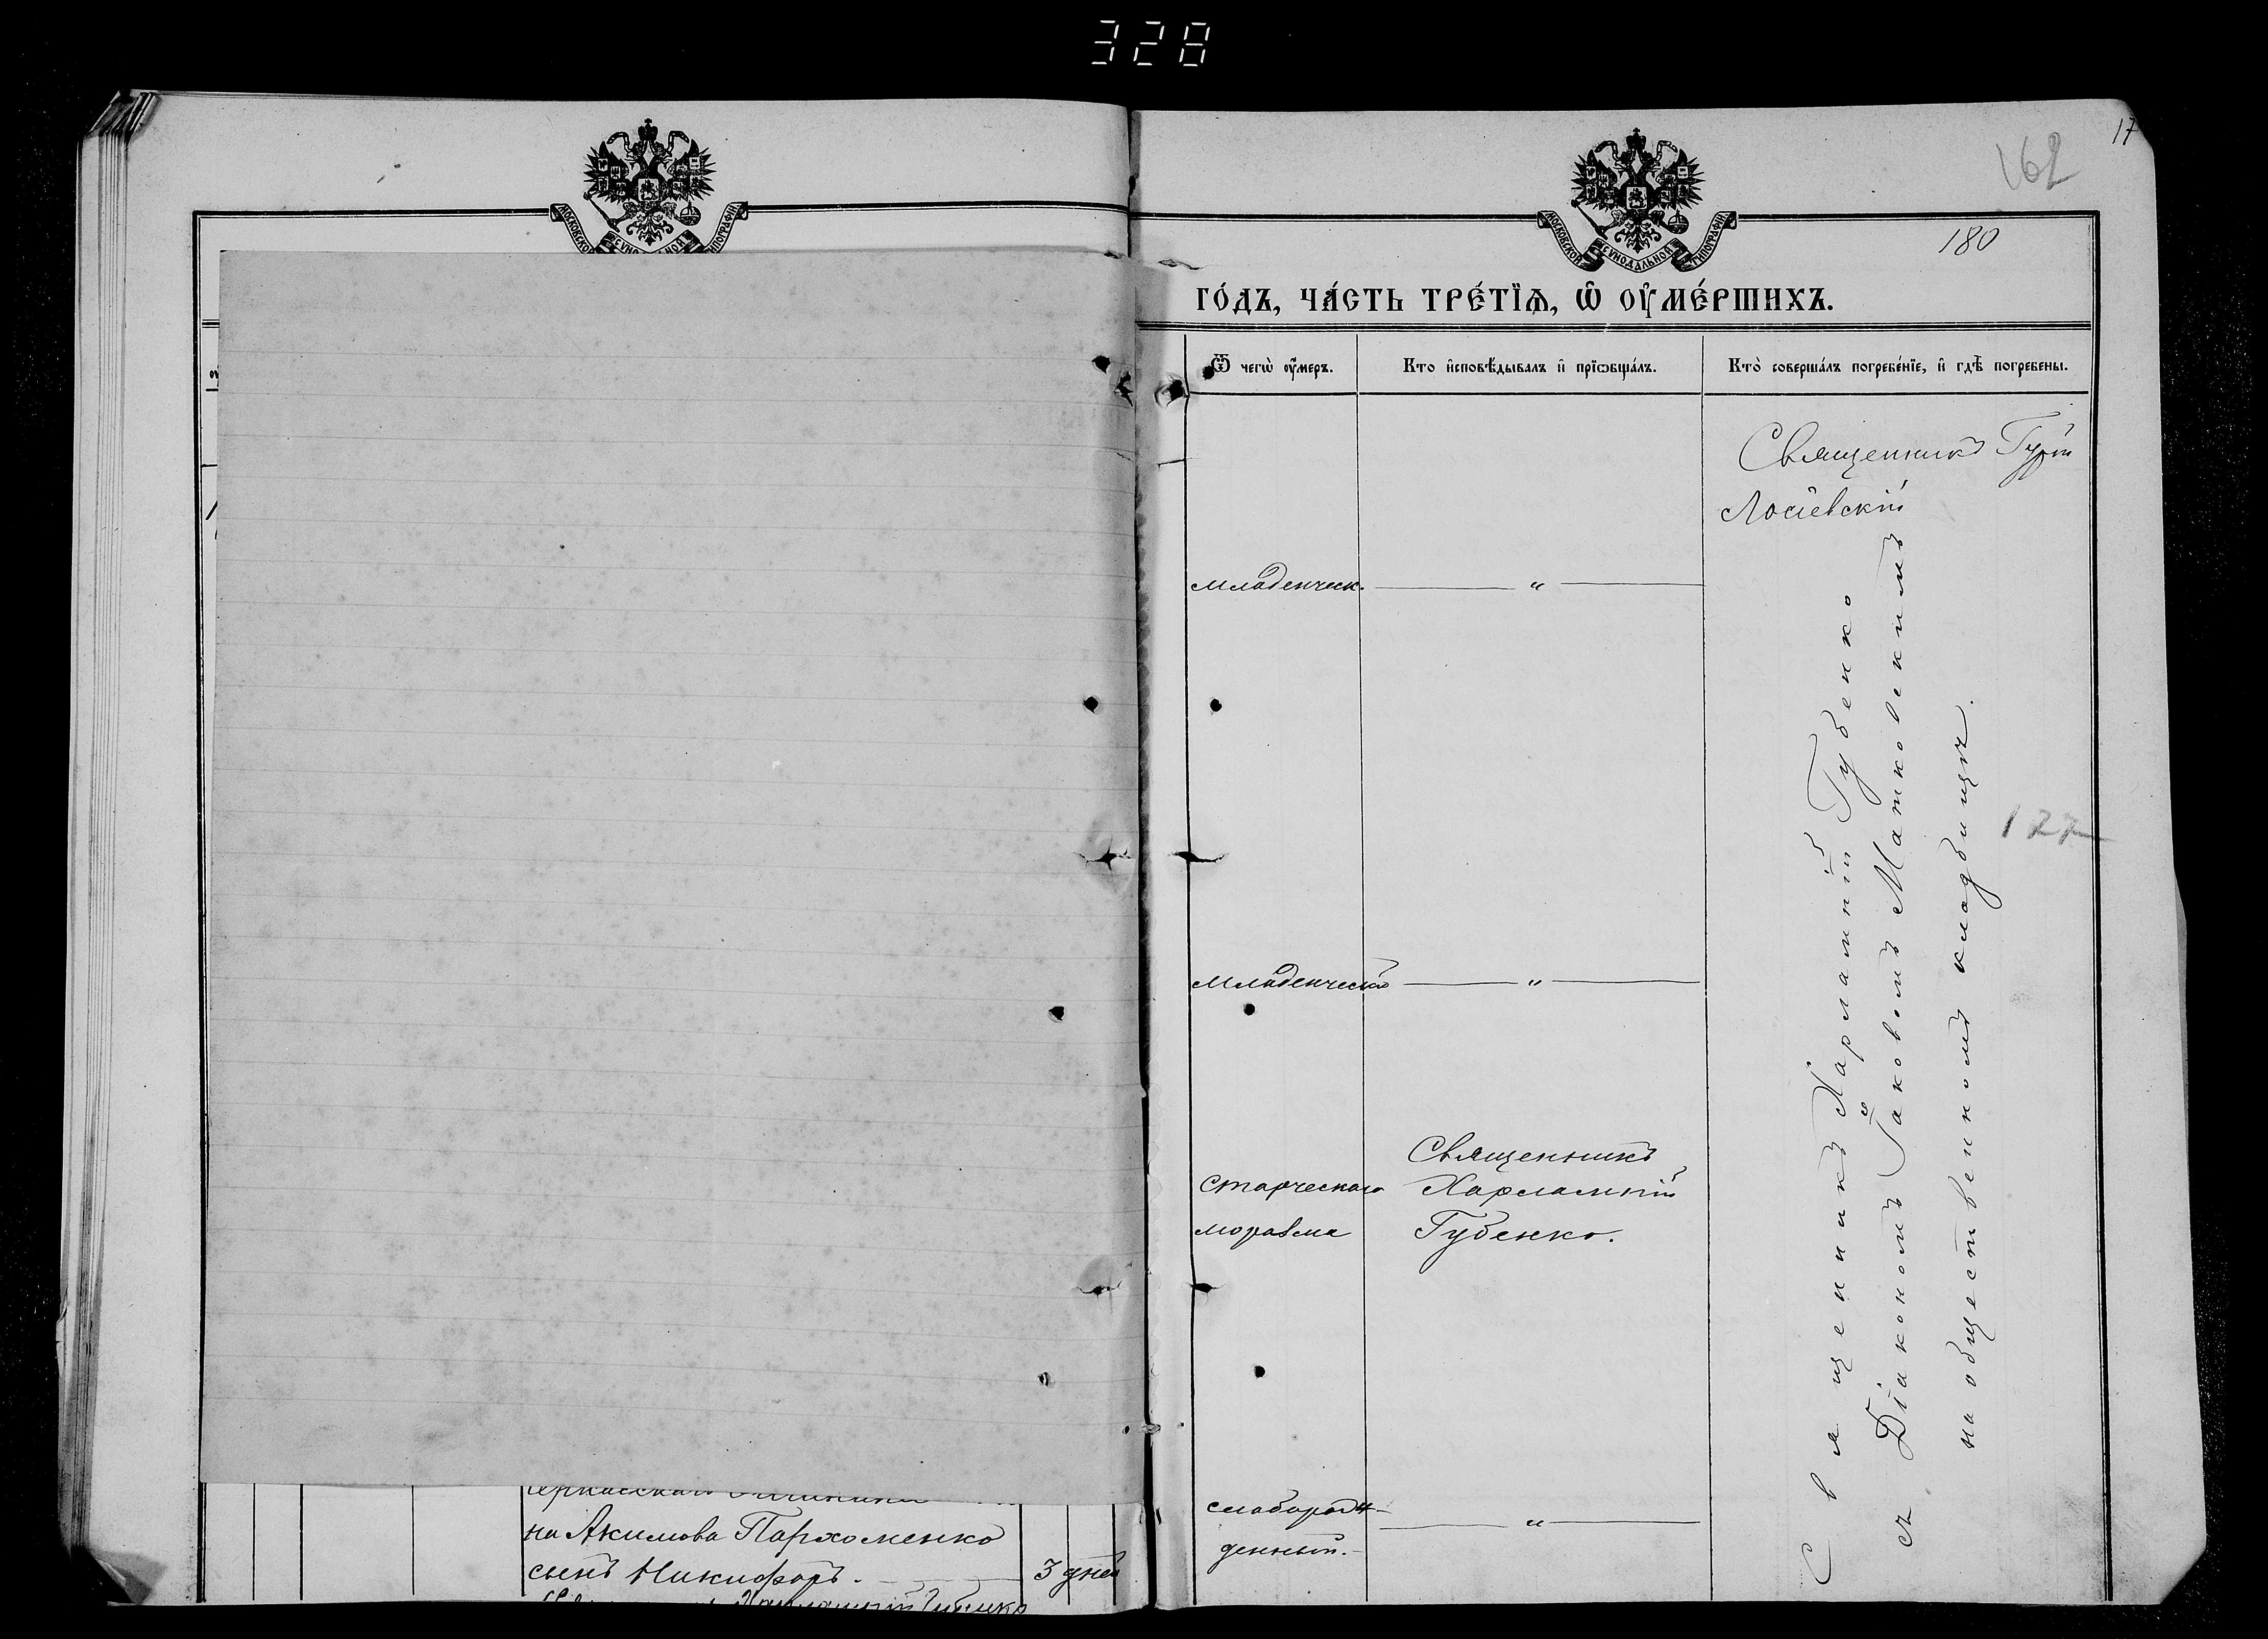 328
17
162
180
МОСКОВСКОЙ СѴНОДАЛЬНОЙ ТИПОГРАФІИ
ГО́ДЪ, ЧА́СТЬ ТРЕ́ТЇѦ, Ѡ҆ ОУ҆МЕ́РШИХЪ.
Ѿ чегѡ̀ оу҆́меръ.
Кто и҆сповѣ́дывалъ и҆ прїѡбща́лъ.
Кто̀ соверша́лъ погребе́нїе, и҆ гдѣ̀ погребены.
Священникъ Гурій
Лосіевскій
младенческ. — " —
младенческаго — " —
старческаго
моразма
Священникъ
Харлампій
Губенко.
слаборож-
денный. — " —
Священникъ Харлампій Губенко
съ Діакономъ Іаковомъ Матковскимъ
на общественномъ кладбищѣ.
127
на Акимова Пархоменко
сынъ Никифоръ.
3 дней
Харлампій Губенко